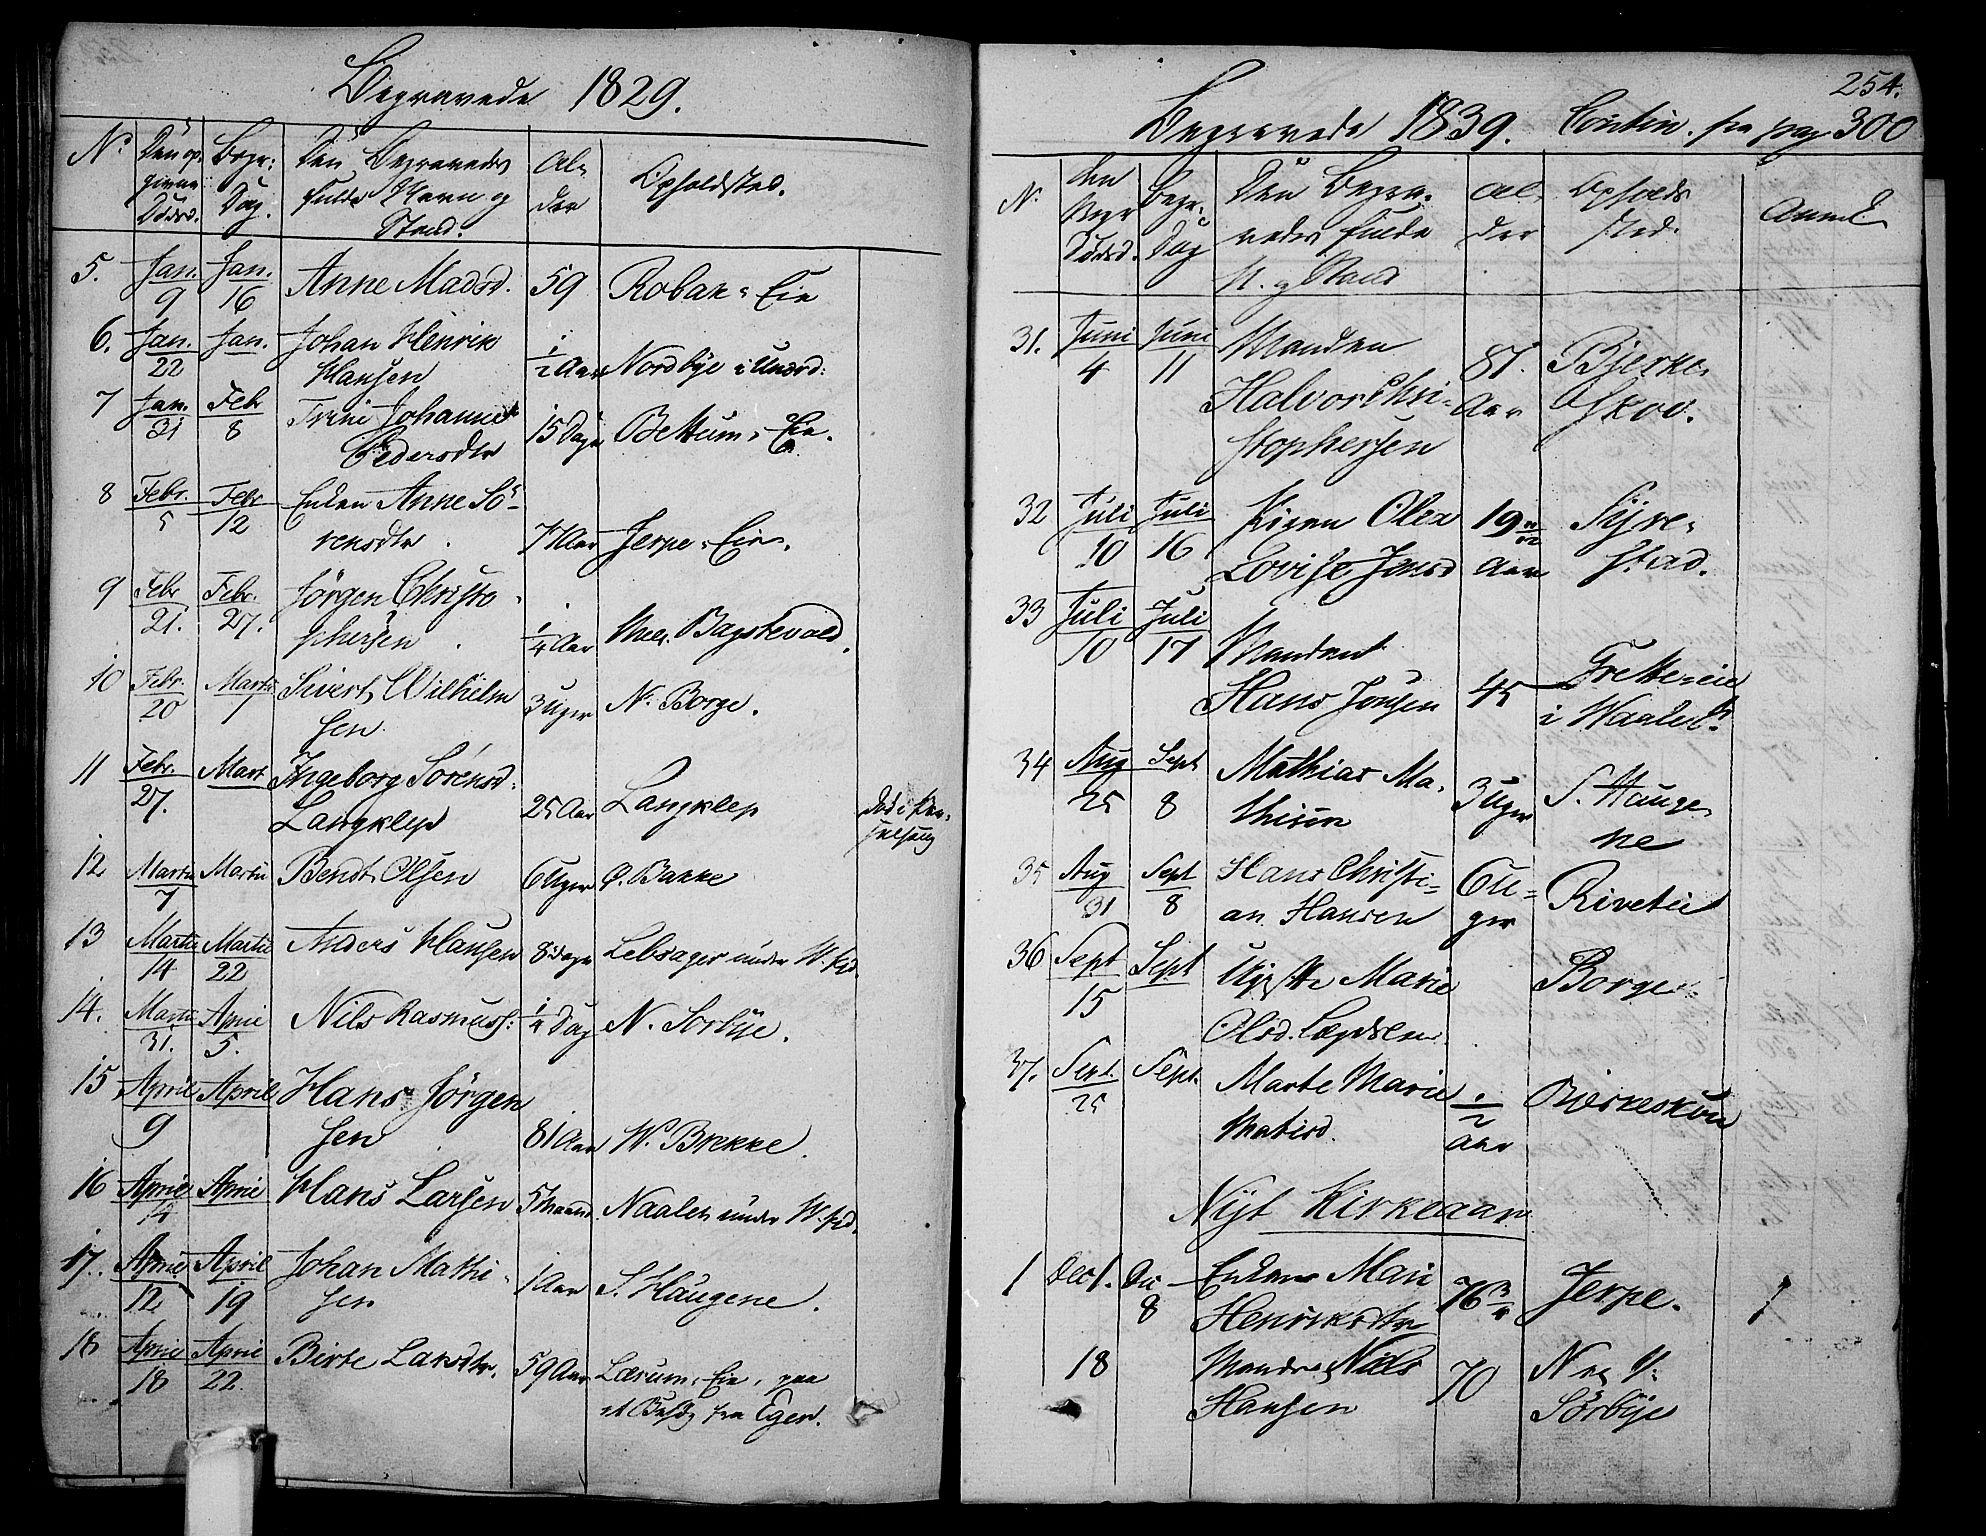 Begravede 1829.
No Den op- Begr: Den Begravedes Al- Opholdsted.
givne Dag. fulde Navn og der
Dödsd. Stand.
5. Jan. 9 Jan. 16 Anne Madsd. 59 Robak-Eie
6. Jan. 22 Jan. Johan Henrik
Hansen 1/2 Aar Nordbye i
7 Jan. 31 Febr 8 Trine Johanne
Pedersdtr 15 Dage Bettum-Eie.
8 Febr. 5 Febr 12 Enken Anne Sö-
rensdtr. 77 Aar Jerpe-Eie.
9 Febr 21. Febr. 27. Jörgen Christo-
phersen. 1/4 Aar Bagstevold.
10 Febr. 20 Marti 1 Sivert Wilhelm
sen. 3 Uger N. Borge.
11 Febr. 27. Mart Ingeborg Sörensd:
Langklep 25 Aar Langklep Död i
12 Martii 7 Martii Bendt Olsen 6 Uger Ø. Bakke
13 Martii 14 Martii 22 Anders Hansen 8 Dage under W. Eid.
14. Martii 31. April 5. Nils Rasmuss: Dag N. Sörbye.
15 April 9 April Hans Jörgen
sen 81 Aar W. Brekke.
16 April 14 April Hans Larsen 5 Maaned. under W. Eid.
17. April 12 April 19 Johan Mathi-
sen 1 Aar S. Haugene.
18 April 18 April 22 Birte Larsdtr. 59 Aar Lærum-Eie, paa
et Besög fra Egen.
254.
Begravede 1839. Contin. fra pag 300
No. den Begr. Den Begra- Al- Opholds Anm.
Opgr Dag vedes fulde der sted.
Dödsd. N. og Stand
31. Juni 4 Juni 11 Manden
Halvor Chri-
stophersen 87. Aar Bjerke-
skov.
32 Juli 10 Juli 16 Pigen Olea
Lovise Jensd 19 Aar Fyre-
stad.
33 Juli 10 Juli 17 Manden
Hans Jonsen 45 Frette-eie
i
34 Aug 25 Sept 8 Mathias Ma-
thisen 3 Uger S. Hauge-
ne
35 Aug 31 Sept 8 Hans Christi-
an Hansen 6 U-
ger
36 Sept 15 Sept Marie
Olsd. Borge
37. Sept. 25 Sept. Marte Marie
Matisd. 1/2 Aar Bierkeskou
Nyt Kirkeaar
1 Dec 1. Dec 8 Enken Mari
Henriksdtr 76 3/4 Jerpe.
18 Manden Niels
Hansen 70 N
Sörbye